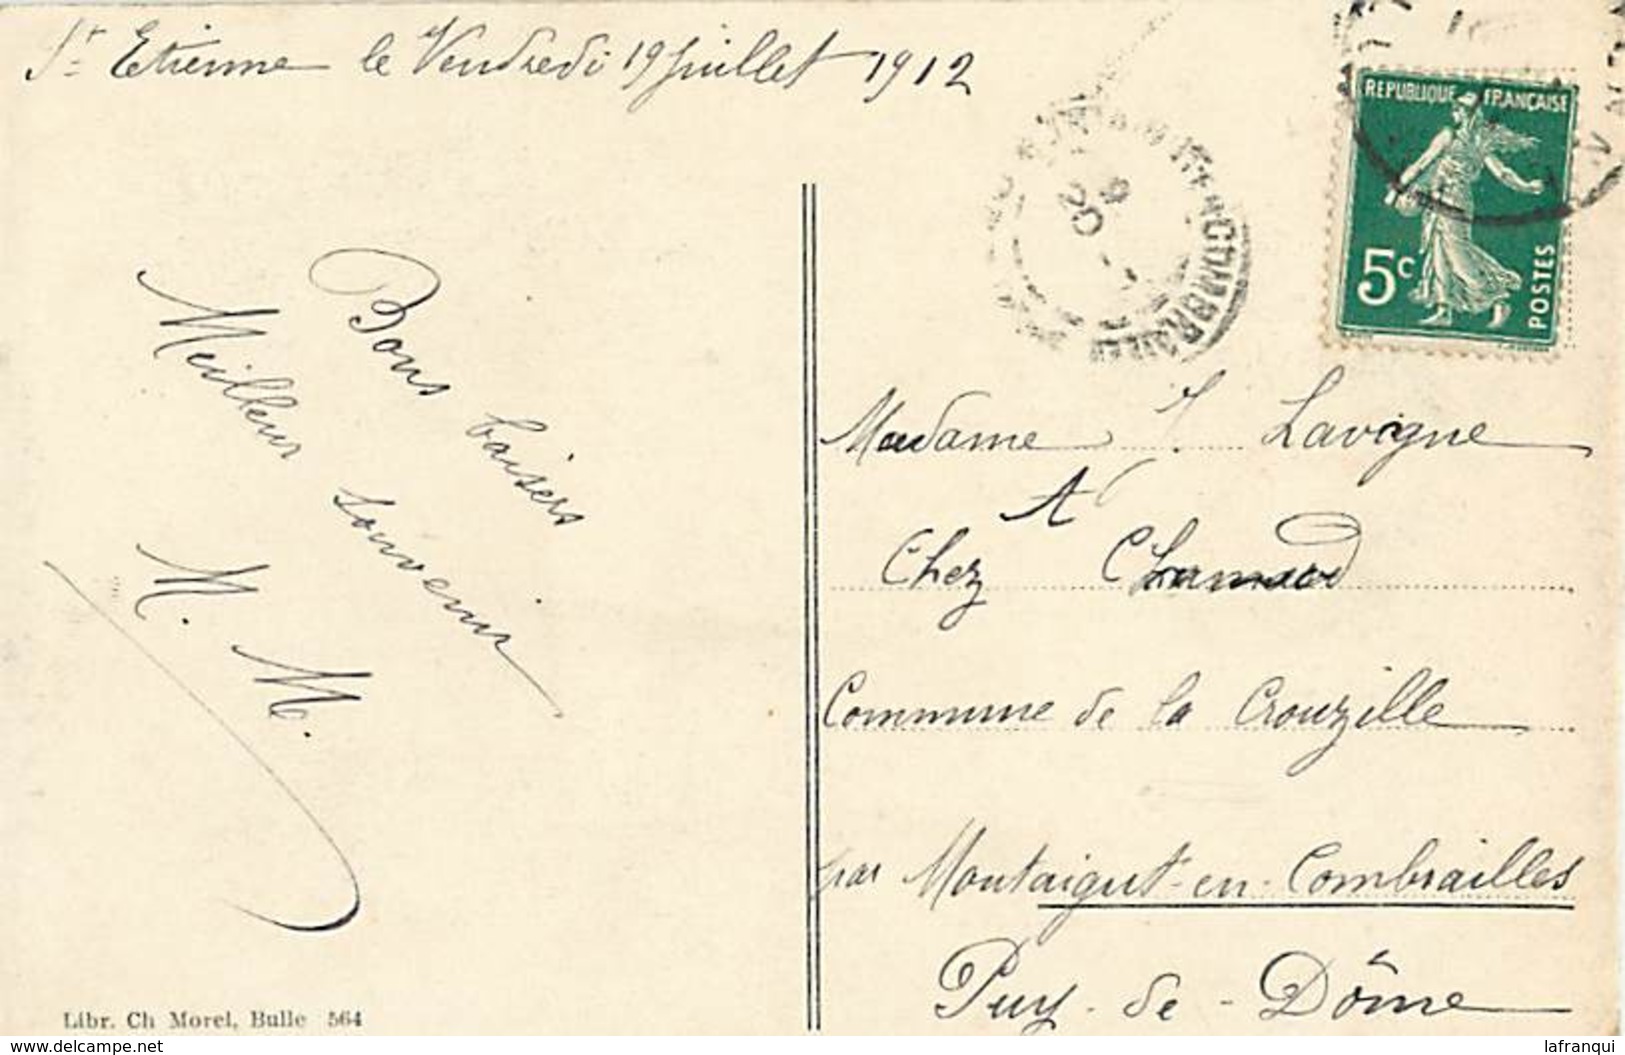 St Etienne le Vendredi 19 juillet 1912
REPUBLIQUE FRANÇAISE
5c
POSTES
20
Bons baisers
Meilleur souvenir
M. M.
Madame Lavigne
A
Chez
Commune de la Crouzille
par Montaigut-en-Combrailles
Puy-de-Dôme
Libr. Ch Morel, Bulle 564
www.delcampe.net
lafranqui